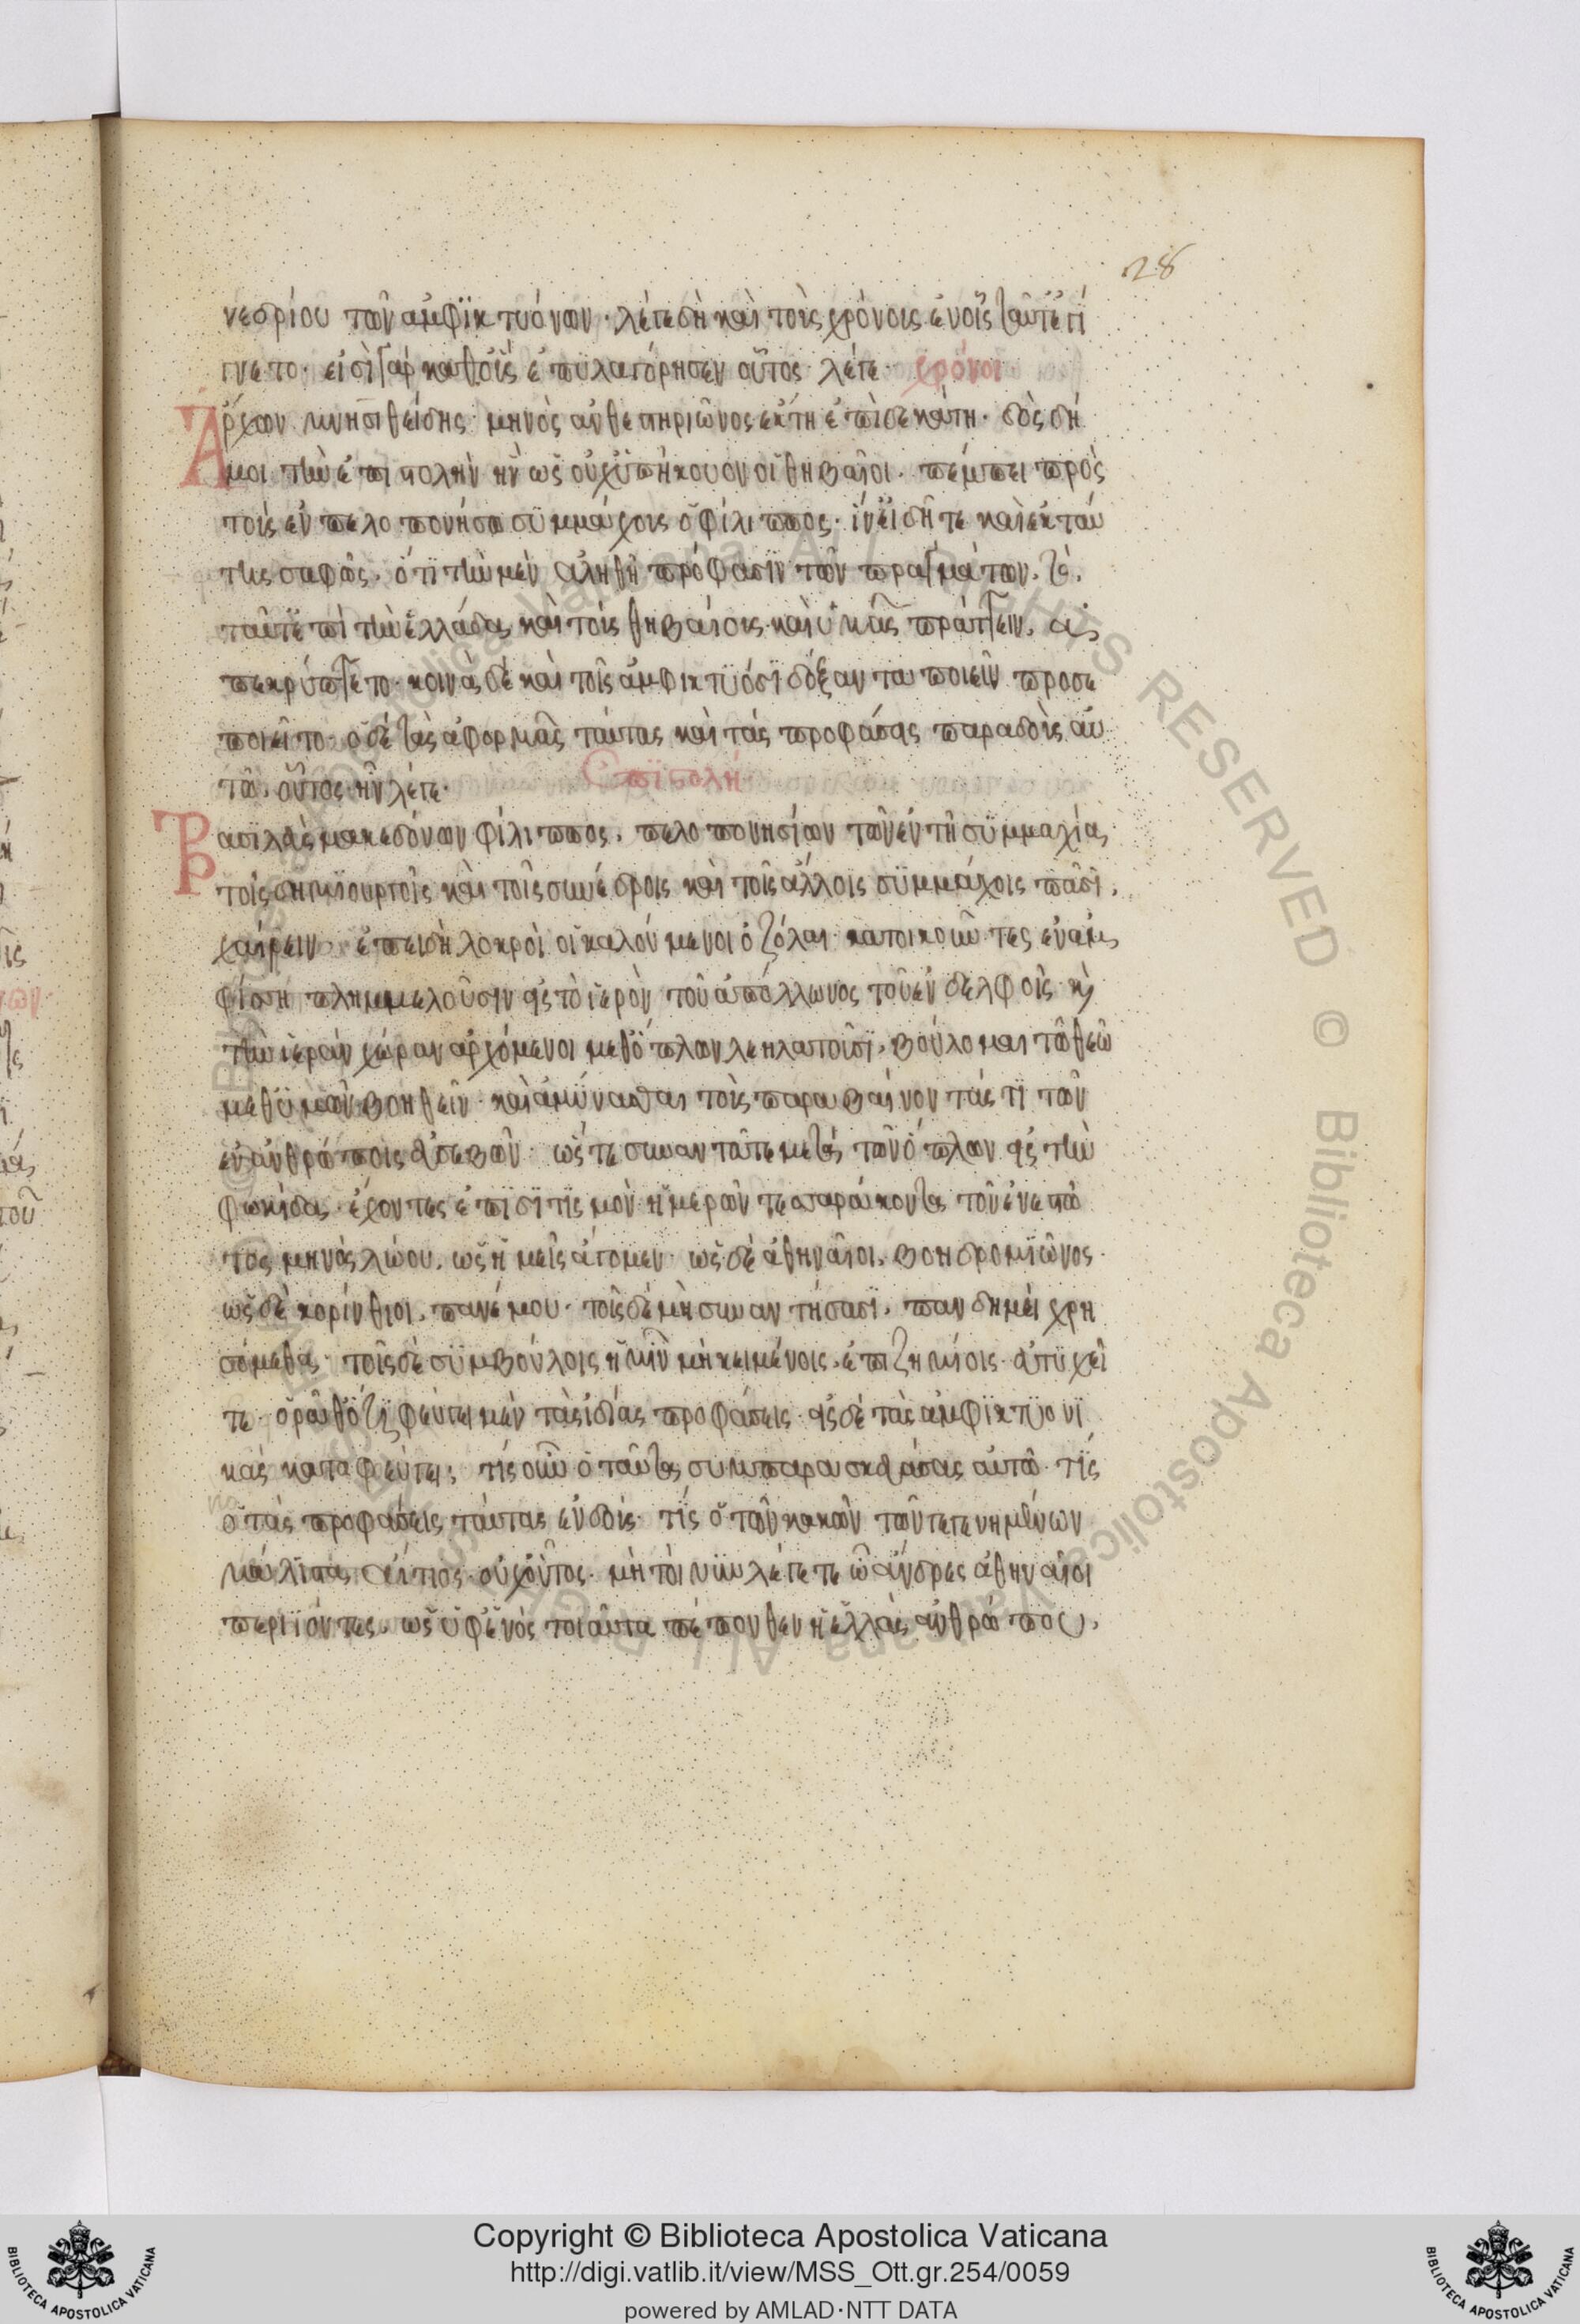 28
νεδρίου τῶν ἀμφικτυόνων· λέγε δὴ καὶ τοὺς χρόνους ἐν οἷς ταῦτ' ἐγί
γνετο· εἰσὶ γὰρ καθ' οὓς ἐπυλαγόρησεν οὗτος· λέγε· χρόνοι
Ἄρχων μνησιθείδης· μηνὸς ἀνθεστηριῶνος ἕκτῃ ἐπὶ δεκάτῃ· δὸς δή
μοι τὴν ἐπιστολὴν ἣν ὡς οὐχ ὑπήκουον οἱ θηβαῖοι· πέμπει πρὸς
τοὺς ἐν πελοποννήσῳ συμμάχους ὁ φίλιππος· ἵν' εἰδῆτε καὶ ἐκ ταύ
της σαφῶς· ὅτι τὴν μὲν ἀληθῆ πρόφασιν τῶν πραγμάτων, τὸ
ταῦτ' ἐπὶ τὴν ἑλλάδα καὶ τοὺς θηβαίους καὶ ὑμᾶς πράττειν, ἀ
πεκρύπτετο· κοινὰ δὲ καὶ τοῖς ἀμφικτύοσι δόξαντα ποιεῖν προσε
ποιεῖτο· ὁ δὲ τὰς ἀφορμὰς ταύτας καὶ τὰς προφάσεις παραδοὺς αὐ
τῷ, οὗτος ἦν λέγε· Ἐπιστολή
Βασιλεὺς μακεδόνων φίλιππος, πελοποννησίων τῶν ἐν τῇ συμμαχίᾳ
τοῖς δημιουργοῖς καὶ τοῖς συνέδροις καὶ τοῖς ἄλλοις συμμάχοις πᾶσι,
χαίρειν· ἐπειδὴ λοκροὶ οἱ καλούμενοι ὀζόλαι κατοικοῦντες ἐν ἀμ
φίσσῃ πλημμελοῦσιν εἰς τὸ ἱερὸν τοῦ ἀπόλλωνος τοῦ ἐν δελφοῖς καὶ
τὴν ἱερὰν χώραν ἀρχόμενοι μεθ' ὅπλων λεηλατοῦσι, βούλομαι τῷ θεῷ
μεθ' ὑμῶν βοηθεῖν καὶ ἀμύνασθαι τοὺς παραβαίνοντάς τι τῶν
ἐν ἀνθρώποις εὐσεβῶν· ὥστε συναντᾶτε μετὰ τῶν ὅπλων εἰς τὴν
φωκίδα· ἔχοντες ἐπισιτισμὸν ἡμερῶν τεσσαράκοντα τοῦ ἐνεστῶ
τος μηνὸς λώου, ὡς ἡμεῖς ἄγομεν· ὡς δὲ ἀθηναῖοι, βοηδρομιῶνος·
ὡς δὲ κορίνθιοι, πανέμου· τοῖς δὲ μὴ συναντήσασι, πανδημεὶ χρη
σόμεθα· τοῖς δὲ συμβούλοις ἡμῖν μὴ κειμένοις, ἐπιζημίοις· εὐτυχεῖ
τε· ὁρᾶθ' ὅτι φεύγει μὲν τὰς ἰδίας προφάσεις· εἰς δὲ τὰς ἀμφικτυονι
κὰς καταφεύγει; τίς οὖν ὁ ταῦτα συμπαρασκευάσας αὐτῷ· τίς
ὁ τὰς προφάσεις ταύτας ἐνδούς· τίς ὁ τῶν κακῶν τῶν γεγενημένων
μάλιστα αἴτιος· οὐχ οὗτος· μὴ τοίνυν λέγετε ὦ ἄνδρες ἀθηναῖοι
περιιόντες, ὡς ὑφ' ἑνὸς τοιαῦτα πέπονθεν ἡ ἑλλὰς ἀνθρώπου,
© Biblioteca Apostolica Vaticana ALL RIGHTS RESERVED
Copyright © Biblioteca Apostolica Vaticana
http://digi.vatlib.it/view/MSS_Ott.gr.254/0059
powered by AMLAD·NTT DATA
BIBLIOTECA APOSTOLICA VATICANA
BIBLIOTECA APOSTOLICA VATICANA